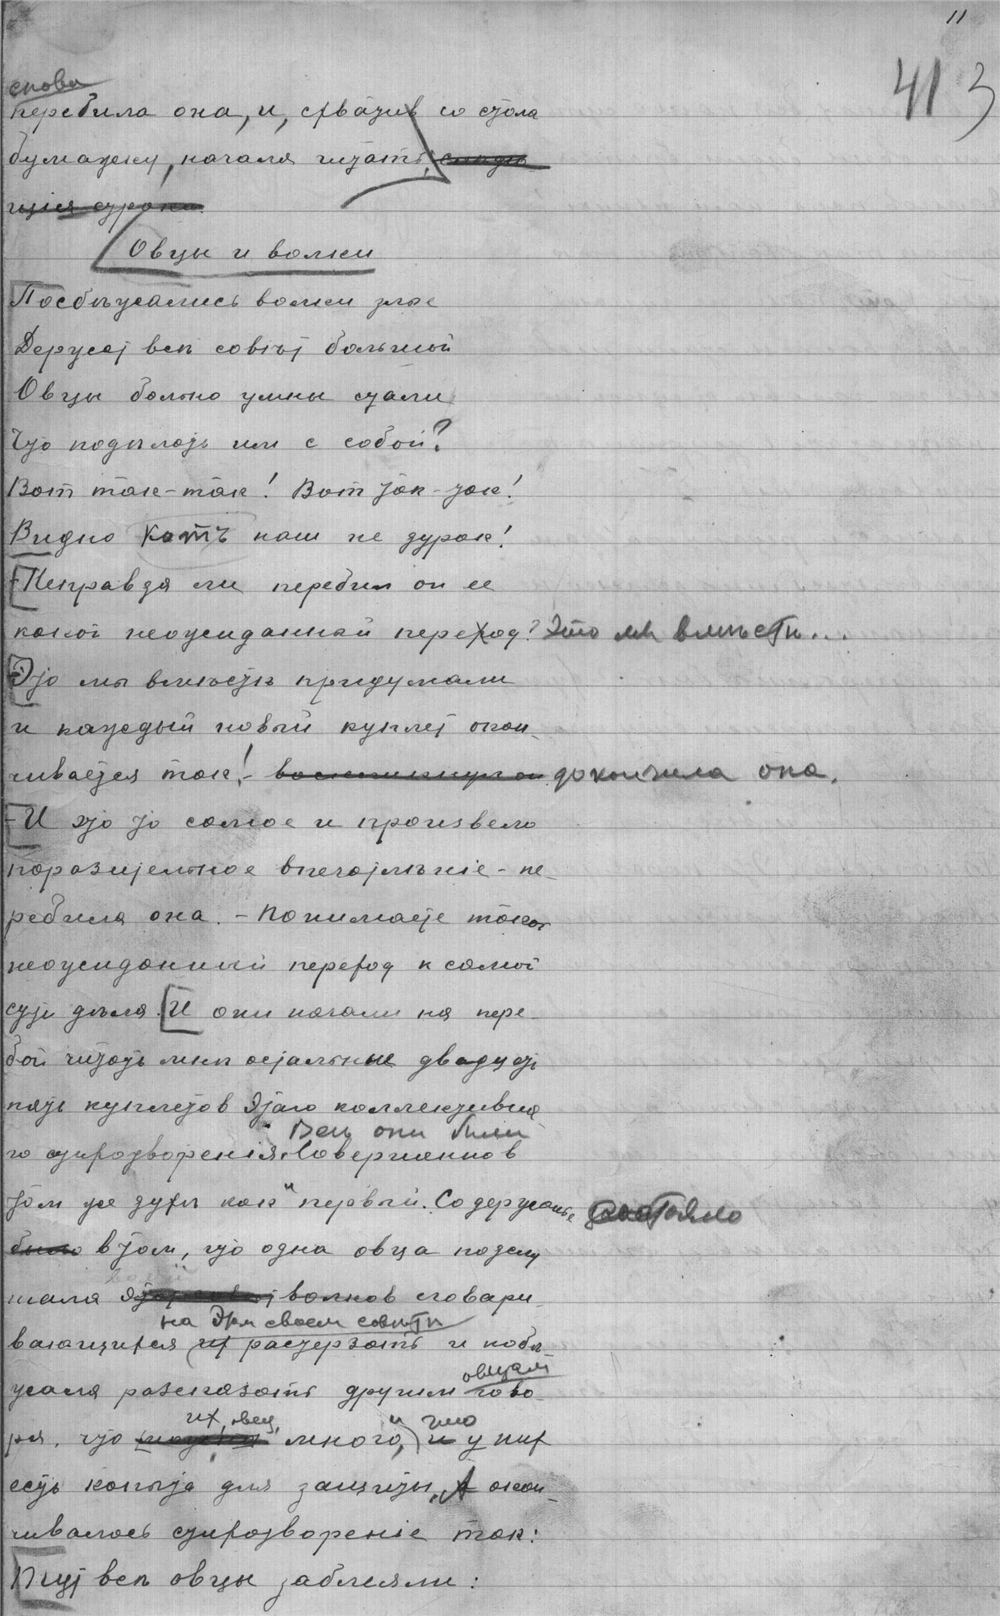 11
413
снова
перебила она, и, схватив со стола
бумажку, начала читать:
Овцы и волки
Посбѣжались волки злые
Держат всѣ совѣт большой
Овцы больно умны стали
Что подѣлать им с собой?
Вот так-так! Вот так-так!
Видно котъ наш не дурак!
- Неправда ли перебил он ее
какой неожиданный переход? Это мы вмѣстѣ...
- Это мы вмѣстѣ придумали
и каждый новый куплет окан-
чивается так! - воскликнул он докончила она.
- И это то самое и произвело
поразительное впечатлѣніе - пе-
ребила она. - Понимаете такой
неожиданный переход к самой
сути дѣла. И они начали на пере-
бой читать мнѣ остальные двадцать
пять куплетов этаго коллективна-
Всѣ они были
го стихотворенія. Совершенно в
том же духѣ как и первый. Содержанье состояло
было в том, что одна овца подслу-
шала волков сговари-
на этом своем совѣтѣ
вающихся их растерзать и побѣ-
жала разсказать другим гово-
овцам
ря, что много, и у них
их, овец, и что
есть копыта для защиты. А окан-
чивалось стихотвореніе так:
Тут всѣ овцы заблеяли: